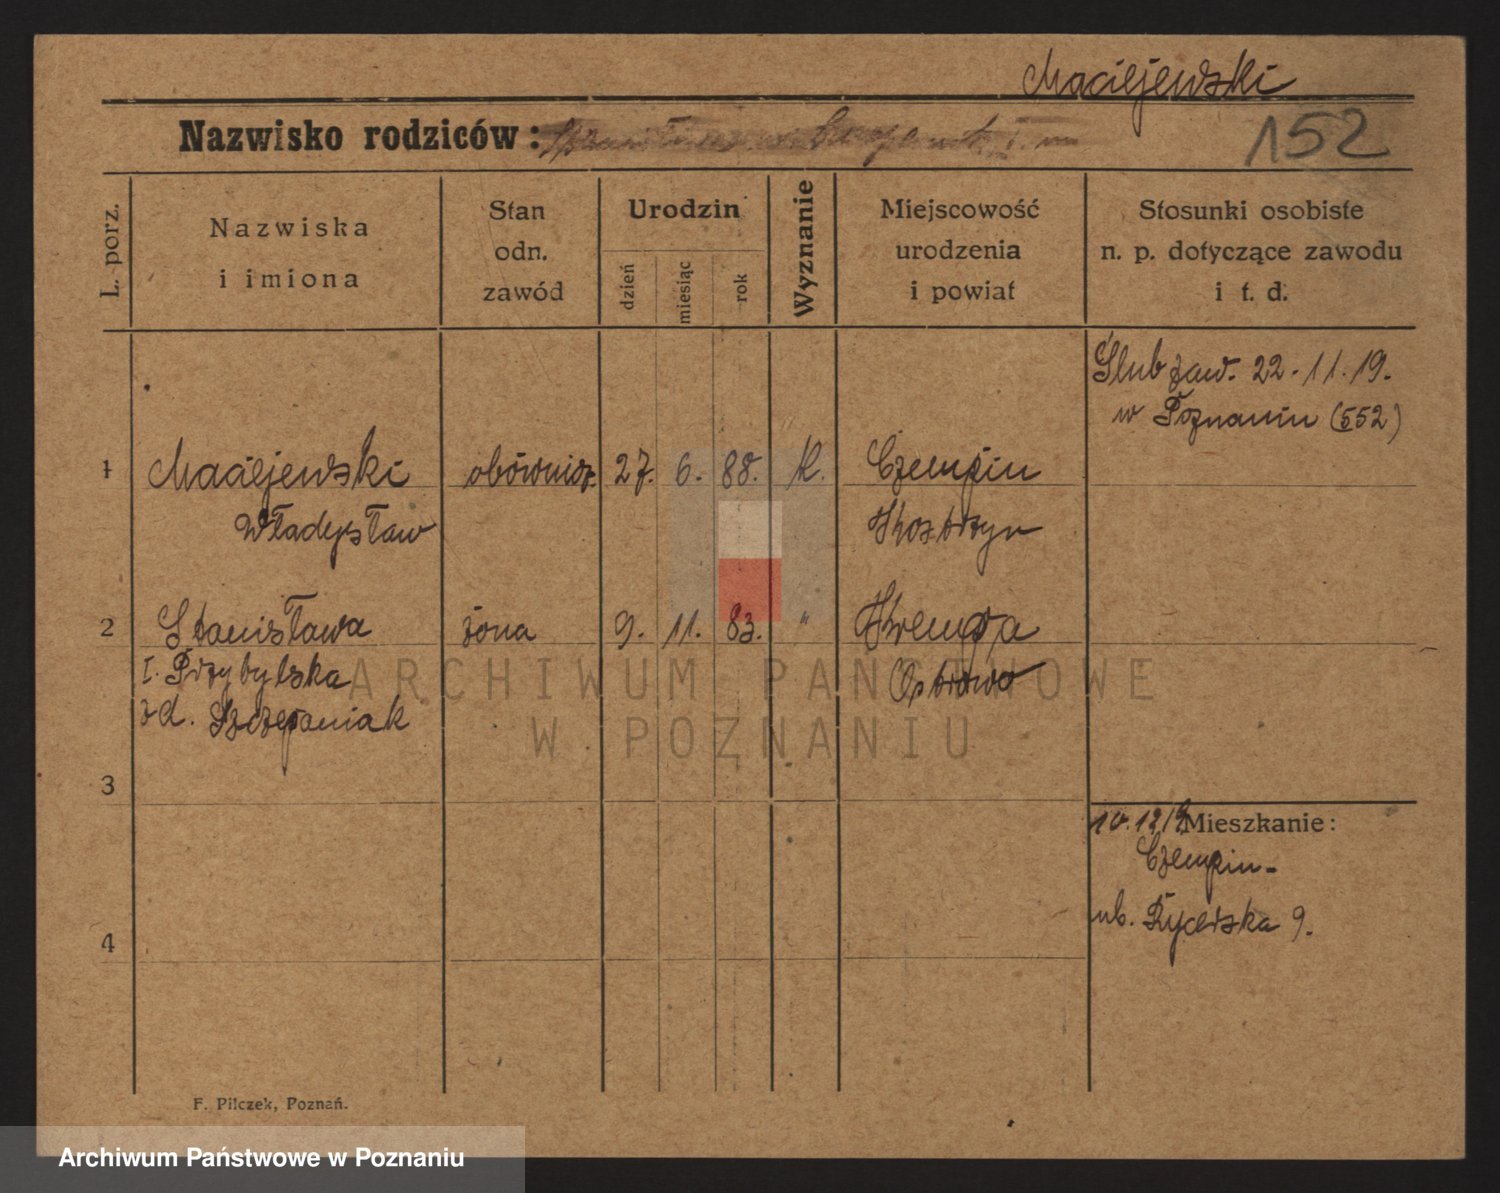 Maciejewski
Nazwisko rodziców:
152
L. porz.
Nazwiska
i imiona
Stan
odn.
zawód
Urodzin
dzień
miesiąc
rok
Wyznanie
Miejscowość
urodzenia
i powiat
Stosunki osobiste
n. p. dotyczące zawodu
i t. d.
Ślub zaw. 22.11.19.
w Poznaniu (552)
1 Maciejewski obównicz. 27. 6. 88. K. Czempin
Władysław Kostrzyn
2 Stanisława żona 9. 11. 83. " Krempa
I. Przybylska Ostrowo
zd. Szczepaniak
3
10.12.19 Mieszkanie:
Czempin-
ul. Rycerska 9.
4
F. Pilczek, Poznań.
ARCHIWUM PAŃSTWOWE
W POZNANIU
Archiwum Państwowe w Poznaniu